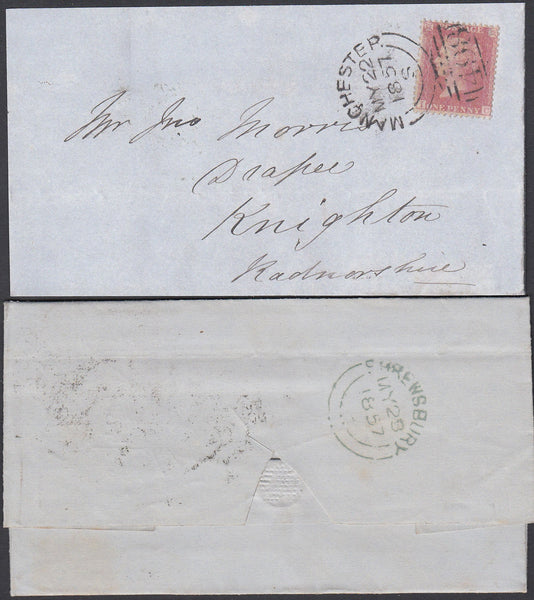 MANCHESTER
S
1857
MY 22
ONE PENNY
Mr Jno Morris
Draper
Knighton
Radnorshire
SHREWSBURY
MY 23
1857